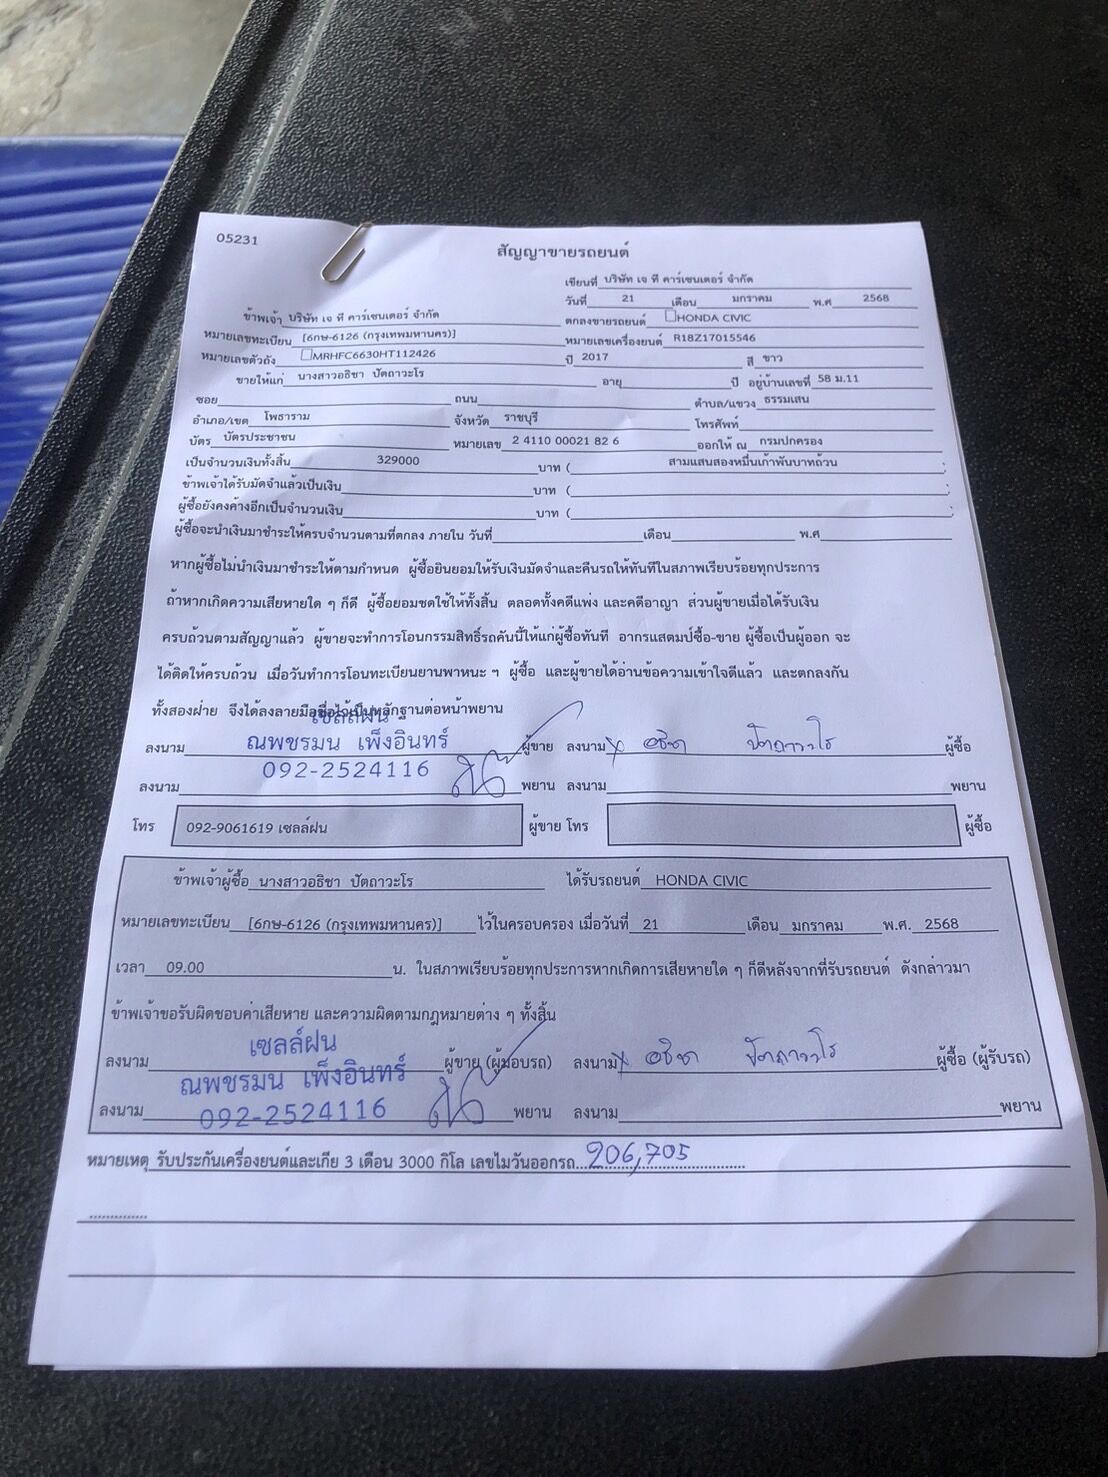 05231
สัญญาขายรถยนต์
เขียนที่ บริษัท เจ ที คาร์เซนเตอร์ จำกัด
วันที่ 21 เดือน มกราคม พ.ศ 2568
ข้าพเจ้า บริษัท เจ ที คาร์เซนเตอร์ จำกัด ตกลงขายรถยนต์ HONDA CIVIC
หมายเลขทะเบียน [6กษ-6126 (กรุงเทพมหานคร)] หมายเลขเครื่องยนต์ R18Z17015546
หมายเลขตัวถัง MRHFC6630HT112426 ปี 2017 สี ขาว
ขายให้แก่ นางสาวอธิชา ปัตถาวะโร อายุ ปี อยู่บ้านเลขที่ 58 ม.11
ซอย ถนน ตำบล/แขวง ธรรมเสน
อำเภอ/เขต โพธาราม จังหวัด ราชบุรี โทรศัพท์
บัตร บัตรประชาชน หมายเลข 2 4110 00021 82 6 ออกให้ ณ กรมปกครอง
เป็นจำนวนเงินทั้งสิ้น 329000 บาท ( สามแสนสองหมื่นเก้าพันบาทถ้วน )
ข้าพเจ้าได้รับมัดจำแล้วเป็นเงิน บาท ( )
ผู้ซื้อยังคงค้างอีกเป็นจำนวนเงิน บาท ( )
ผู้ซื้อจะนำเงินมาชำระให้ครบจำนวนตามที่ตกลง ภายใน วันที่ เดือน พ.ศ
หากผู้ซื้อไม่นำเงินมาชำระให้ตามกำหนด ผู้ซื้อยินยอมให้รับเงินมัดจำและคืนรถให้ทันทีในสภาพเรียบร้อยทุกประการ
ถ้าหากเกิดความเสียหายใด ๆ ก็ดี ผู้ซื้อยอมชดใช้ให้ทั้งสิ้น ตลอดทั้งคดีแพ่ง และคดีอาญา ส่วนผู้ขายเมื่อได้รับเงิน
ครบถ้วนตามสัญญาแล้ว ผู้ขายจะทำการโอนกรรมสิทธิ์รถคันนี้ให้แก่ผู้ซื้อทันที อากรแสตมป์ซื้อ-ขาย ผู้ซื้อเป็นผู้ออก จะ
ได้ติดให้ครบถ้วน เมื่อวันทำการโอนทะเบียนยานพาหนะ ฯ ผู้ซื้อ และผู้ขายได้อ่านข้อความเข้าใจดีแล้ว และตกลงกัน
ทั้งสองฝ่าย จึงได้ลงลายมือชื่อไว้เป็นหลักฐานต่อหน้าพยาน
เซลล์ฝน
ลงนาม ณพชรมน เพ็งอินทร์ ผู้ขาย ลงนาม x อธิชา ปัตถาวะโร ผู้ซื้อ
092-2524116
ลงนาม พยาน ลงนาม พยาน
โทร 092-9061619 เซลล์ฝน ผู้ขาย โทร ผู้ซื้อ
ข้าพเจ้าผู้ซื้อ นางสาวอธิชา ปัตถาวะโร ได้รับรถยนต์ HONDA CIVIC
หมายเลขทะเบียน [6กษ-6126 (กรุงเทพมหานคร)] ไว้ในครอบครอง เมื่อวันที่ 21 เดือน มกราคม พ.ศ. 2568
เวลา 09.00 น. ในสภาพเรียบร้อยทุกประการหากเกิดการเสียหายใด ๆ ก็ดีหลังจากที่รับรถยนต์ ดังกล่าวมา
ข้าพเจ้าขอรับผิดชอบค่าเสียหาย และความผิดตามกฎหมายต่าง ๆ ทั้งสิ้น
เซลล์ฝน
ลงนาม ณพชรมน เพ็งอินทร์ ผู้ขาย (ผู้มอบรถ) ลงนาม x อธิชา ปัตถาวะโร ผู้ซื้อ (ผู้รับรถ)
ลงนาม 092-2524116 พยาน ลงนาม พยาน
หมายเหตุ รับประกันเครื่องยนต์และเกีย 3 เดือน 3000 กิโล เลขไมวันออกรถ...206,705...
..............